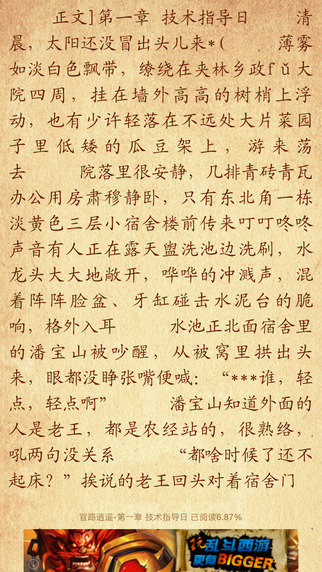 正文]第一章 技术指导日 清
晨，太阳还没冒出头儿来*( 薄雾
如淡白色飘带，缭绕在夹林乡政fǔ大
院四周，挂在墙外高高的树梢上浮
动，也有少许轻落在不远处大片菜园
子里低矮的瓜豆架上，游来荡
去 院落里很安静，几排青砖青瓦
办公用房肃穆静卧，只有东北角一栋
淡黄色三层小宿舍楼前传来叮叮咚咚
声音有人正在露天盥洗池边洗刷，水
龙头大大地敞开，哗哗的冲溅声，混
着阵阵脸盆、牙缸碰击水泥台的脆
响，格外入耳 水池正北面宿舍里
的潘宝山被吵醒，从被窝里拱出头
来，眼都没睁张嘴便喊：“***谁，轻
点，轻点啊” 潘宝山知道外面的
人是老王，都是农经站的，很熟络，
吼两句没关系 “都啥时候了还不
起床？”挨说的老王回头对着宿舍门
官路逍遥-第一章 技术指导日 已阅读6.87%
乱斗西游
更有BIGGER